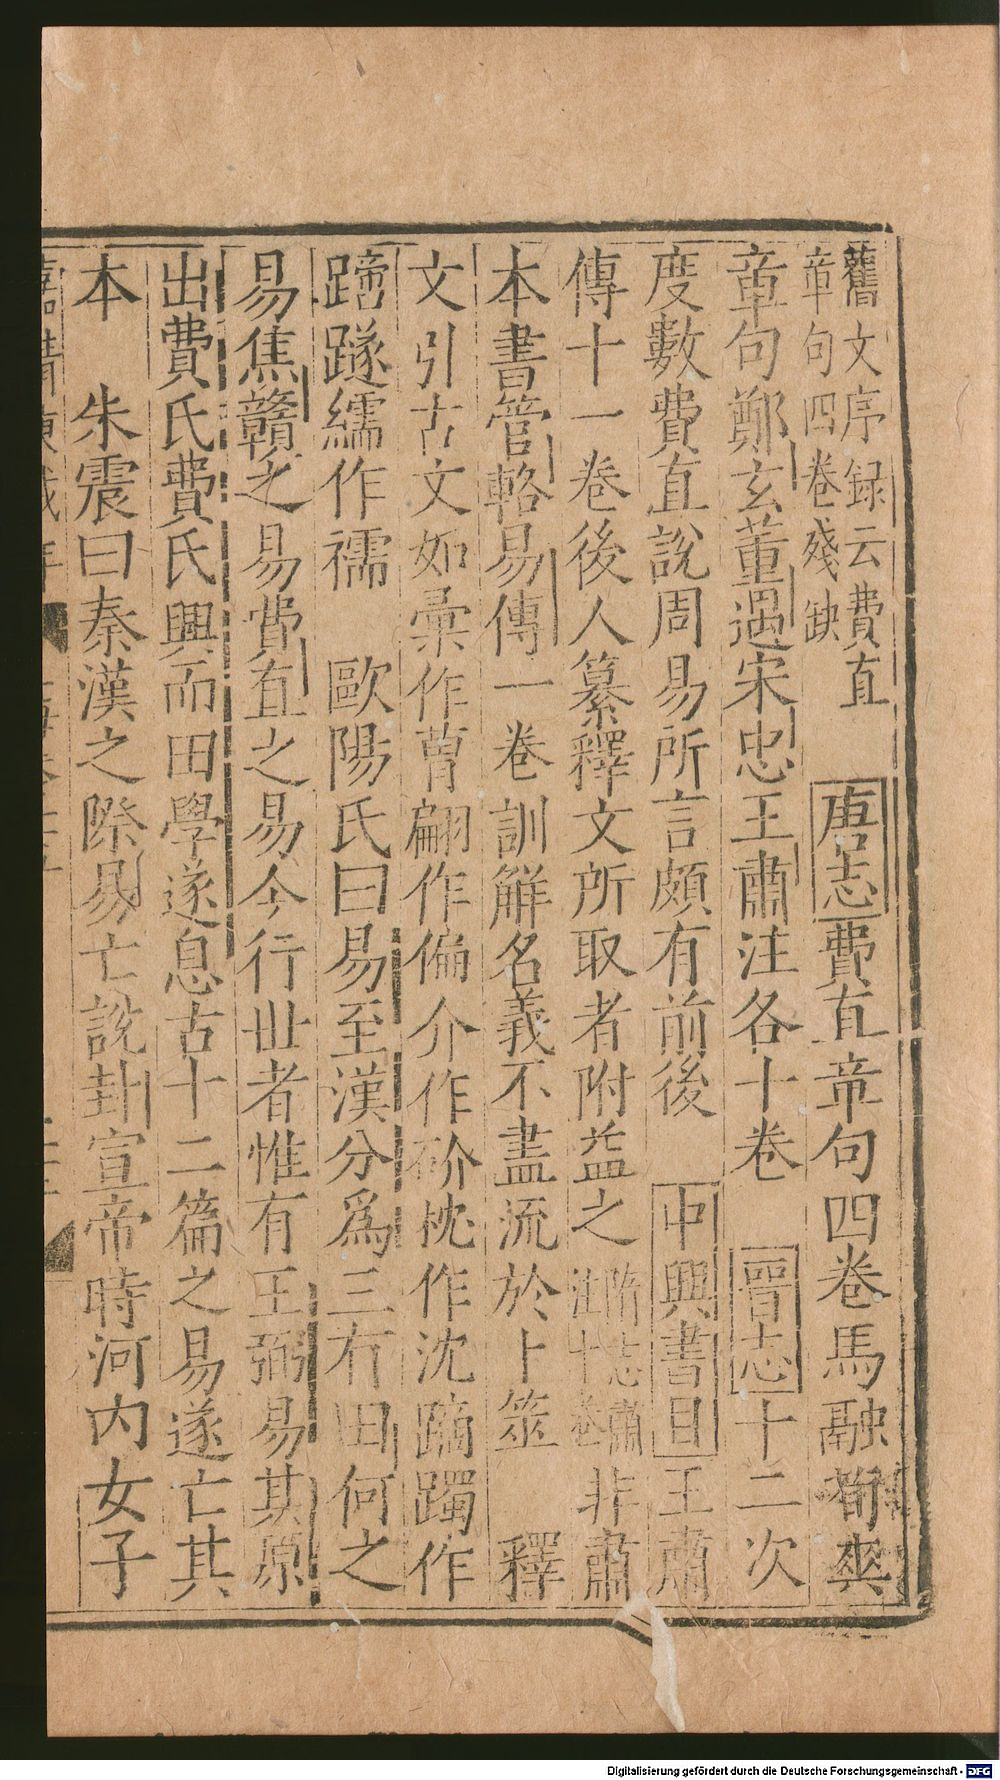 舊文序録云費直
章句四卷殘缺
唐志費直章句四卷馬融荀爽
章句鄭玄董遇宋忠王肅注各十卷　晉志十二次
度數費直說周易所言頗有前後　中興書目王肅
傳十一卷後人纂釋文所取者附益之
隋志肅
注十卷
非肅
本書管輅易傳一卷訓解名義不盡流於卜筮　釋
文引古文如彙作曹翩作偏介作砎枕作沈蹢躅作
蹢䠱繻作襦　歐陽氏曰易至漢分爲三有田何之
易焦贛之易費直之易今行世者惟有王弼易其原
出費氏費氏興而田學遂息古十二篇之易遂亡其
本　朱震曰秦漢之際易亡說卦宣帝時河内女子
Digitalisierung gefördert durch die Deutsche Forschungsgemeinschaft - DFG